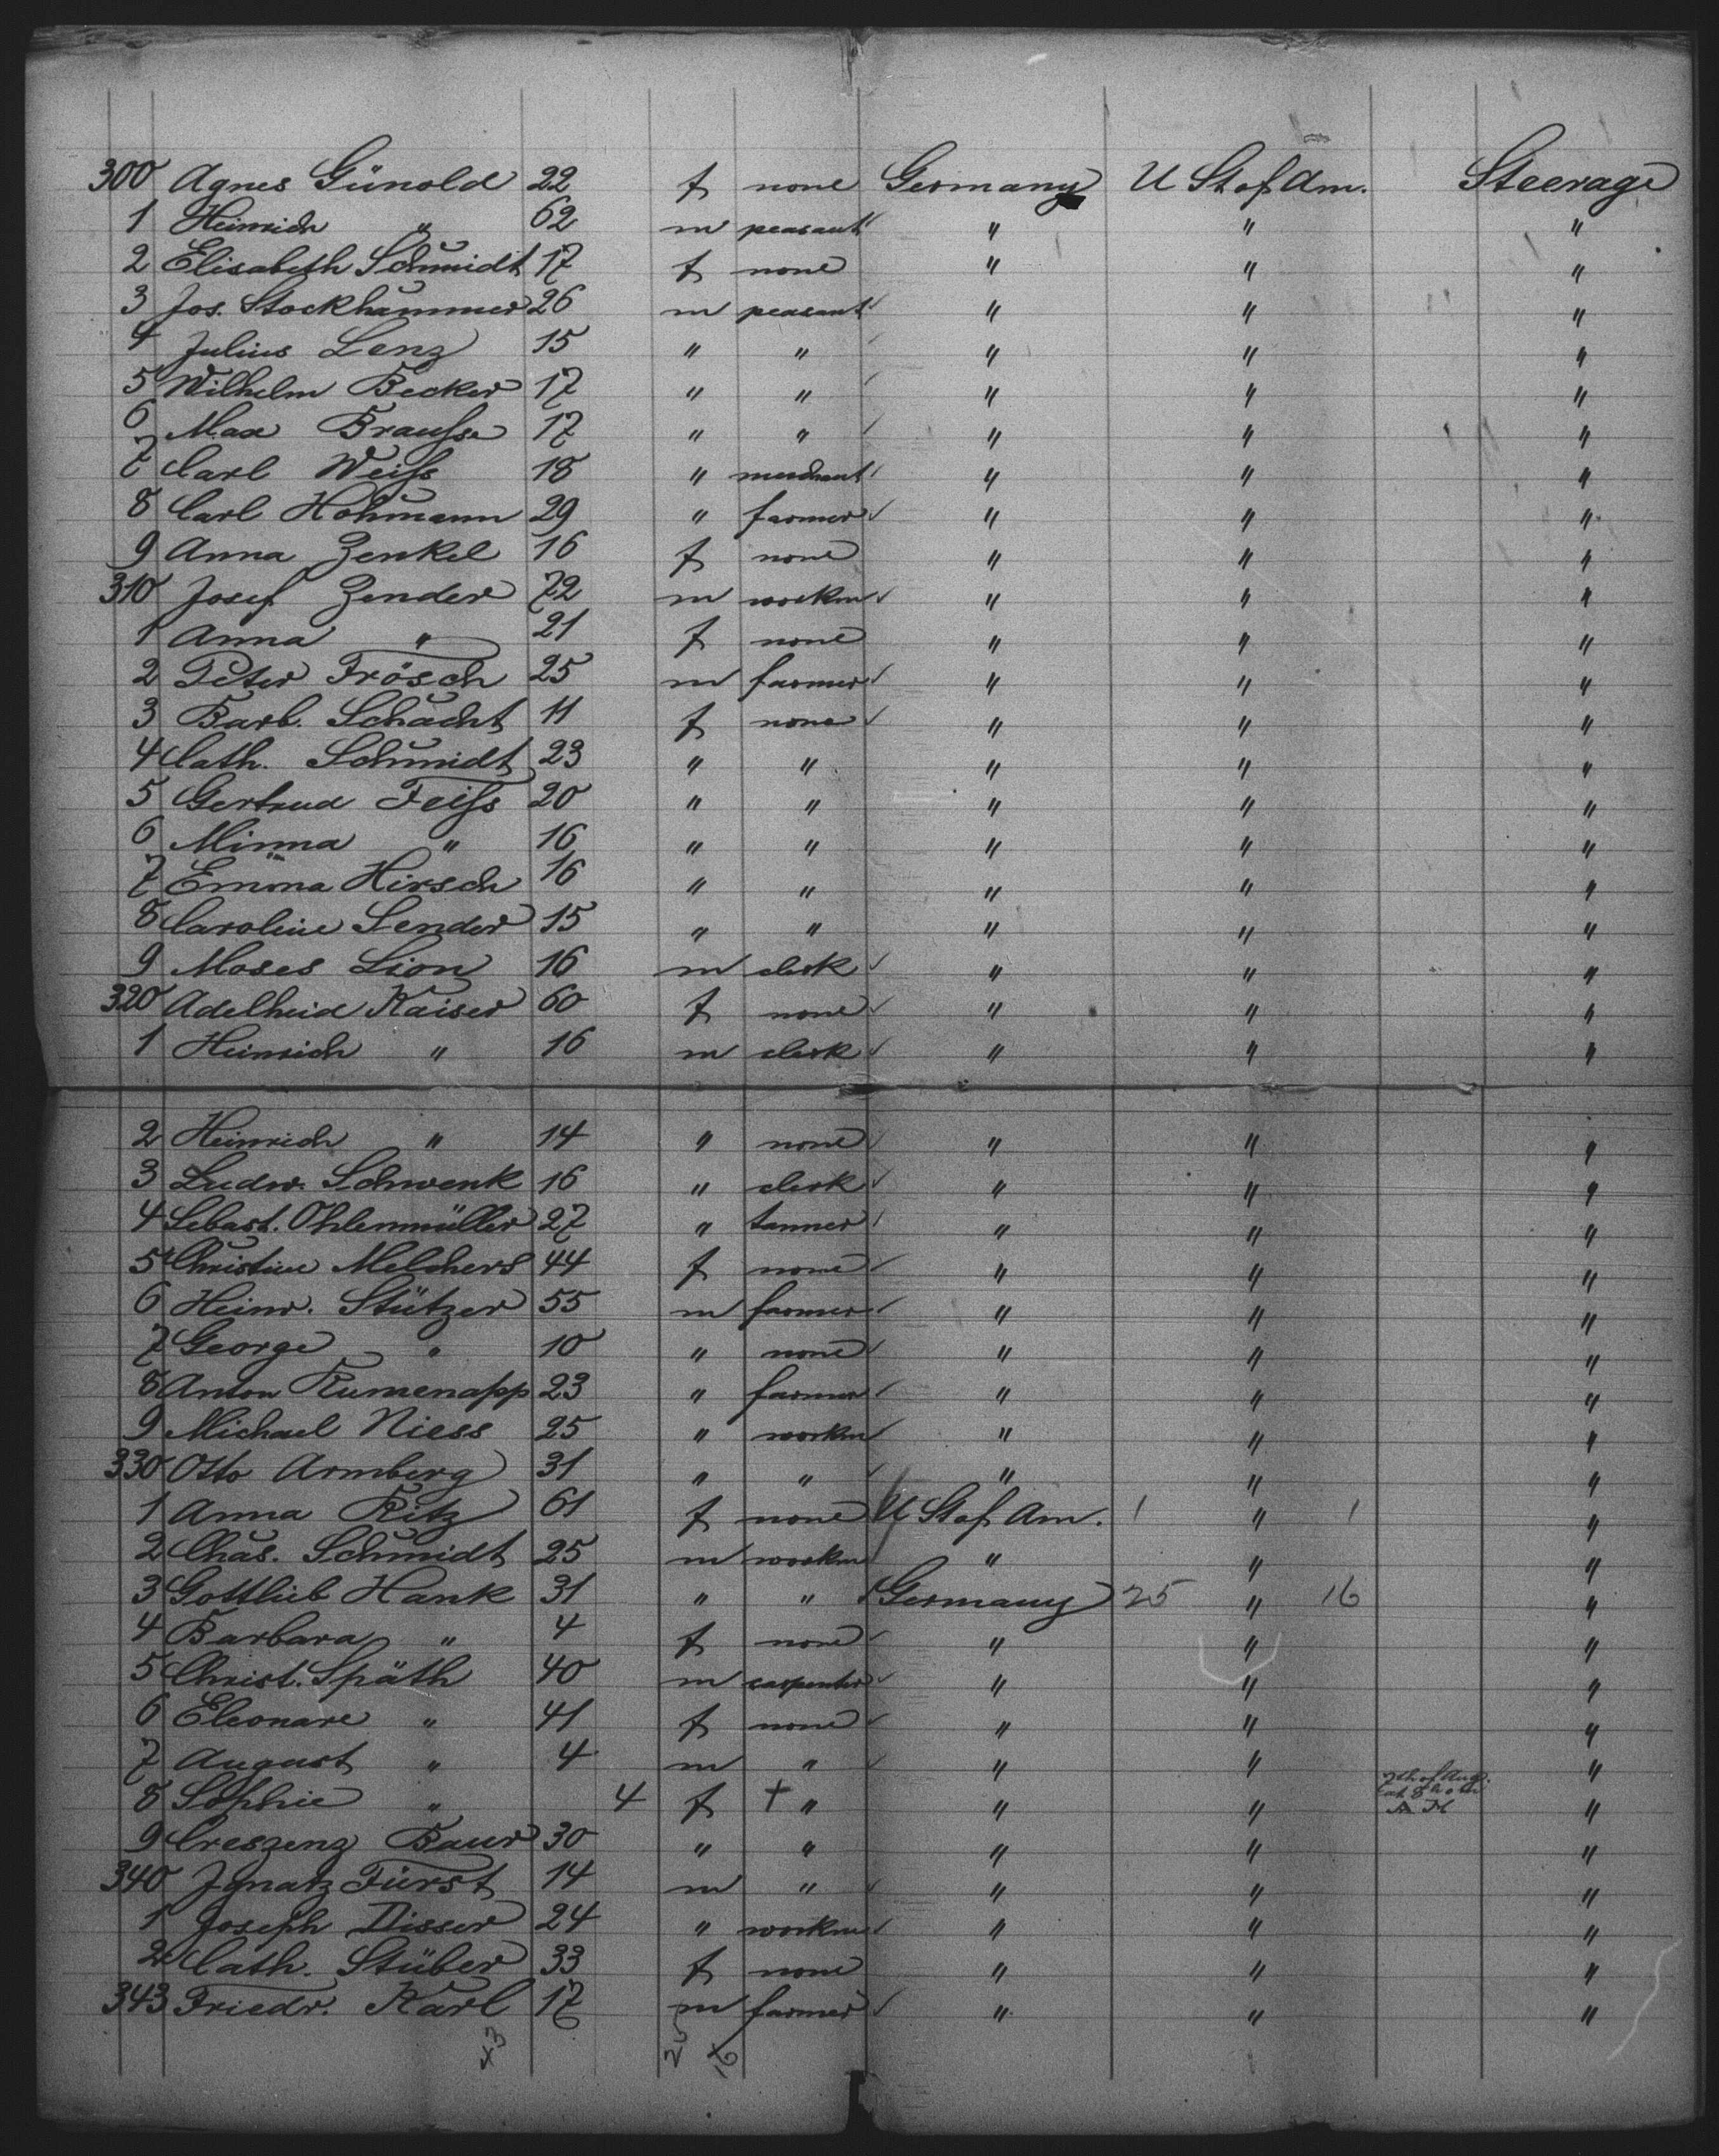 300 Agnes Günold 22 f none Germany U St of Am. Steerage
1 Heinrich " 62 m peasant " " "
2 Elisabeth Schmidt 17 f none " " "
3 Jos. Stockhammer 26 m peasant " " "
4 Julius Lenz 15 " " " " "
5 Wilhelm Becker 17 " " " " "
6 Max Brausse 17 " " " " "
7 Carl Weiss 18 " merchant " " "
8 Carl Hohmann 29 " farmer " " "
9 Anna Zenkel 16 f none " " "
310 Josef Zender 72 m workm " " "
1 Anna " 21 f none " " "
2 Peter Frösch 25 m farmer " " "
3 Barb. Schacht 11 f none " " "
4 Cath. Schmidt 23 " " " " "
5 Gertrud Feiss 20 " " " " "
6 Minna " 16 " " " " "
7 Emma Hirsch 16 " " " " "
8 Caroline Sender 15 " " " " "
9 Moses Lion 16 m clerk " " "
320 Adelheid Kaiser 60 f none " " "
1 Heinrich " 16 m clerk " " "
2 Heinrich " 14 " none " " "
3 Ludw. Schwenk 16 " clerk " " "
4 Sebast. Ohlenmüller 27 " tanner " " "
5 Christine Melchers 44 f none " " "
6 Heinr. Stützer 55 m farmer " " "
7 George " 10 " none " " "
8 Anton Rumenapp 23 " farmer " " "
9 Michael Niess 25 " workm " " "
330 Otto Armberg 31 " " " " "
1 Anna Ritz 61 f none U St of Am. 1 " 1 "
2 Chas. Schmidt 25 m workm " " "
3 Gottlieb Hank 31 " " Germany 25 " 16 "
4 Barbara " 4 f none " " "
5 Christ. Späth 40 m carpenter " " "
6 Eleonare " 41 f none " " "
7 August " 4 m " " " "
8 Sophie " 4 f + " " " 7th of Aug. "
9 Creszenz Baur 30 " " " " "
340 Ignatz Fürst 14 m " " " "
1 Joseph Disser 24 " workm " " "
2 Cath. Stüber 33 f none " " "
343 Friedr. Karl 17 m farmer " " "
43 25 16